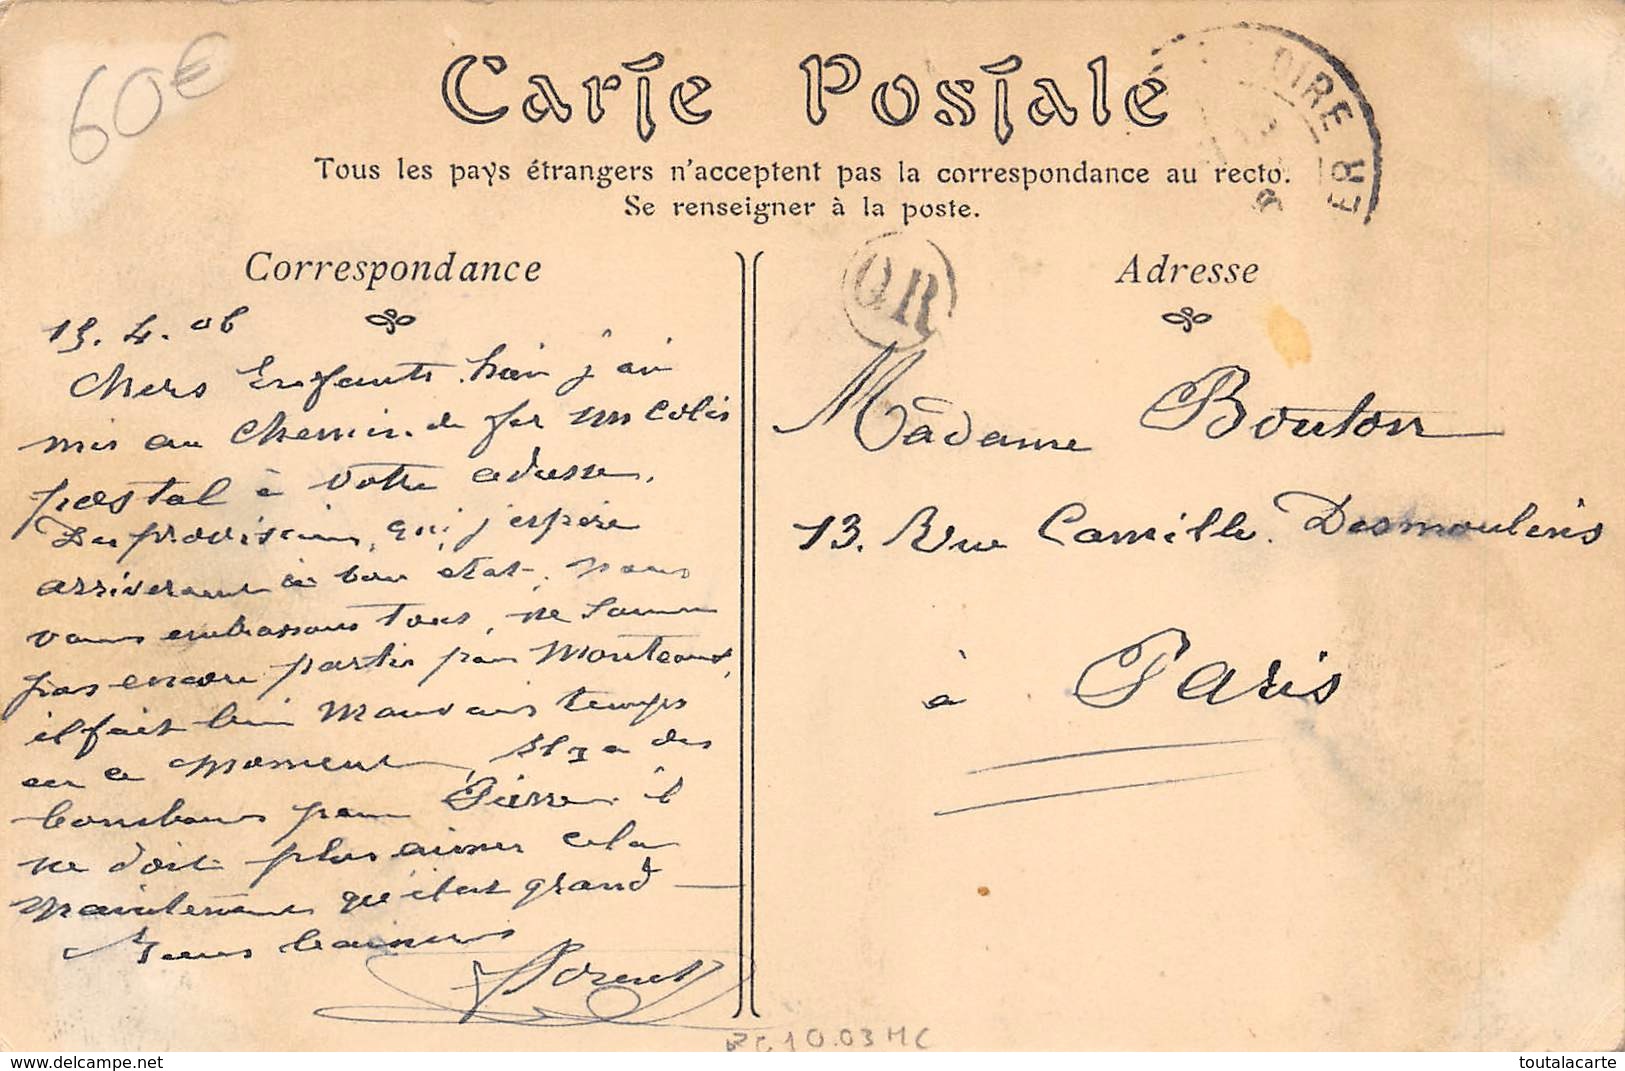 60€
Carte Postale
Tous les pays étrangers n'acceptent pas la correspondance au recto.
Se renseigner à la poste.
OIRE
ER
OR
Correspondance
15.4.06
Chers Enfants hier j'ai
mis au chemin de fer un colis
postal à votre adresse.
Des provisions, qui j'espère
arriveront en bon etat. nous
vous embrassons tous, ne sommes
pas encore partis pour Monteaux,
il fait bien mauvais temps
en ce moment, il y a des
bonbons pour Pierre. il
ne doit plus aimer cela
maintenant qu'il est grand
Adresse
Madame Bouton
13. Rue Camille Desmoulins
à Paris
10.03 MC
delcampe.net
toutalacarte